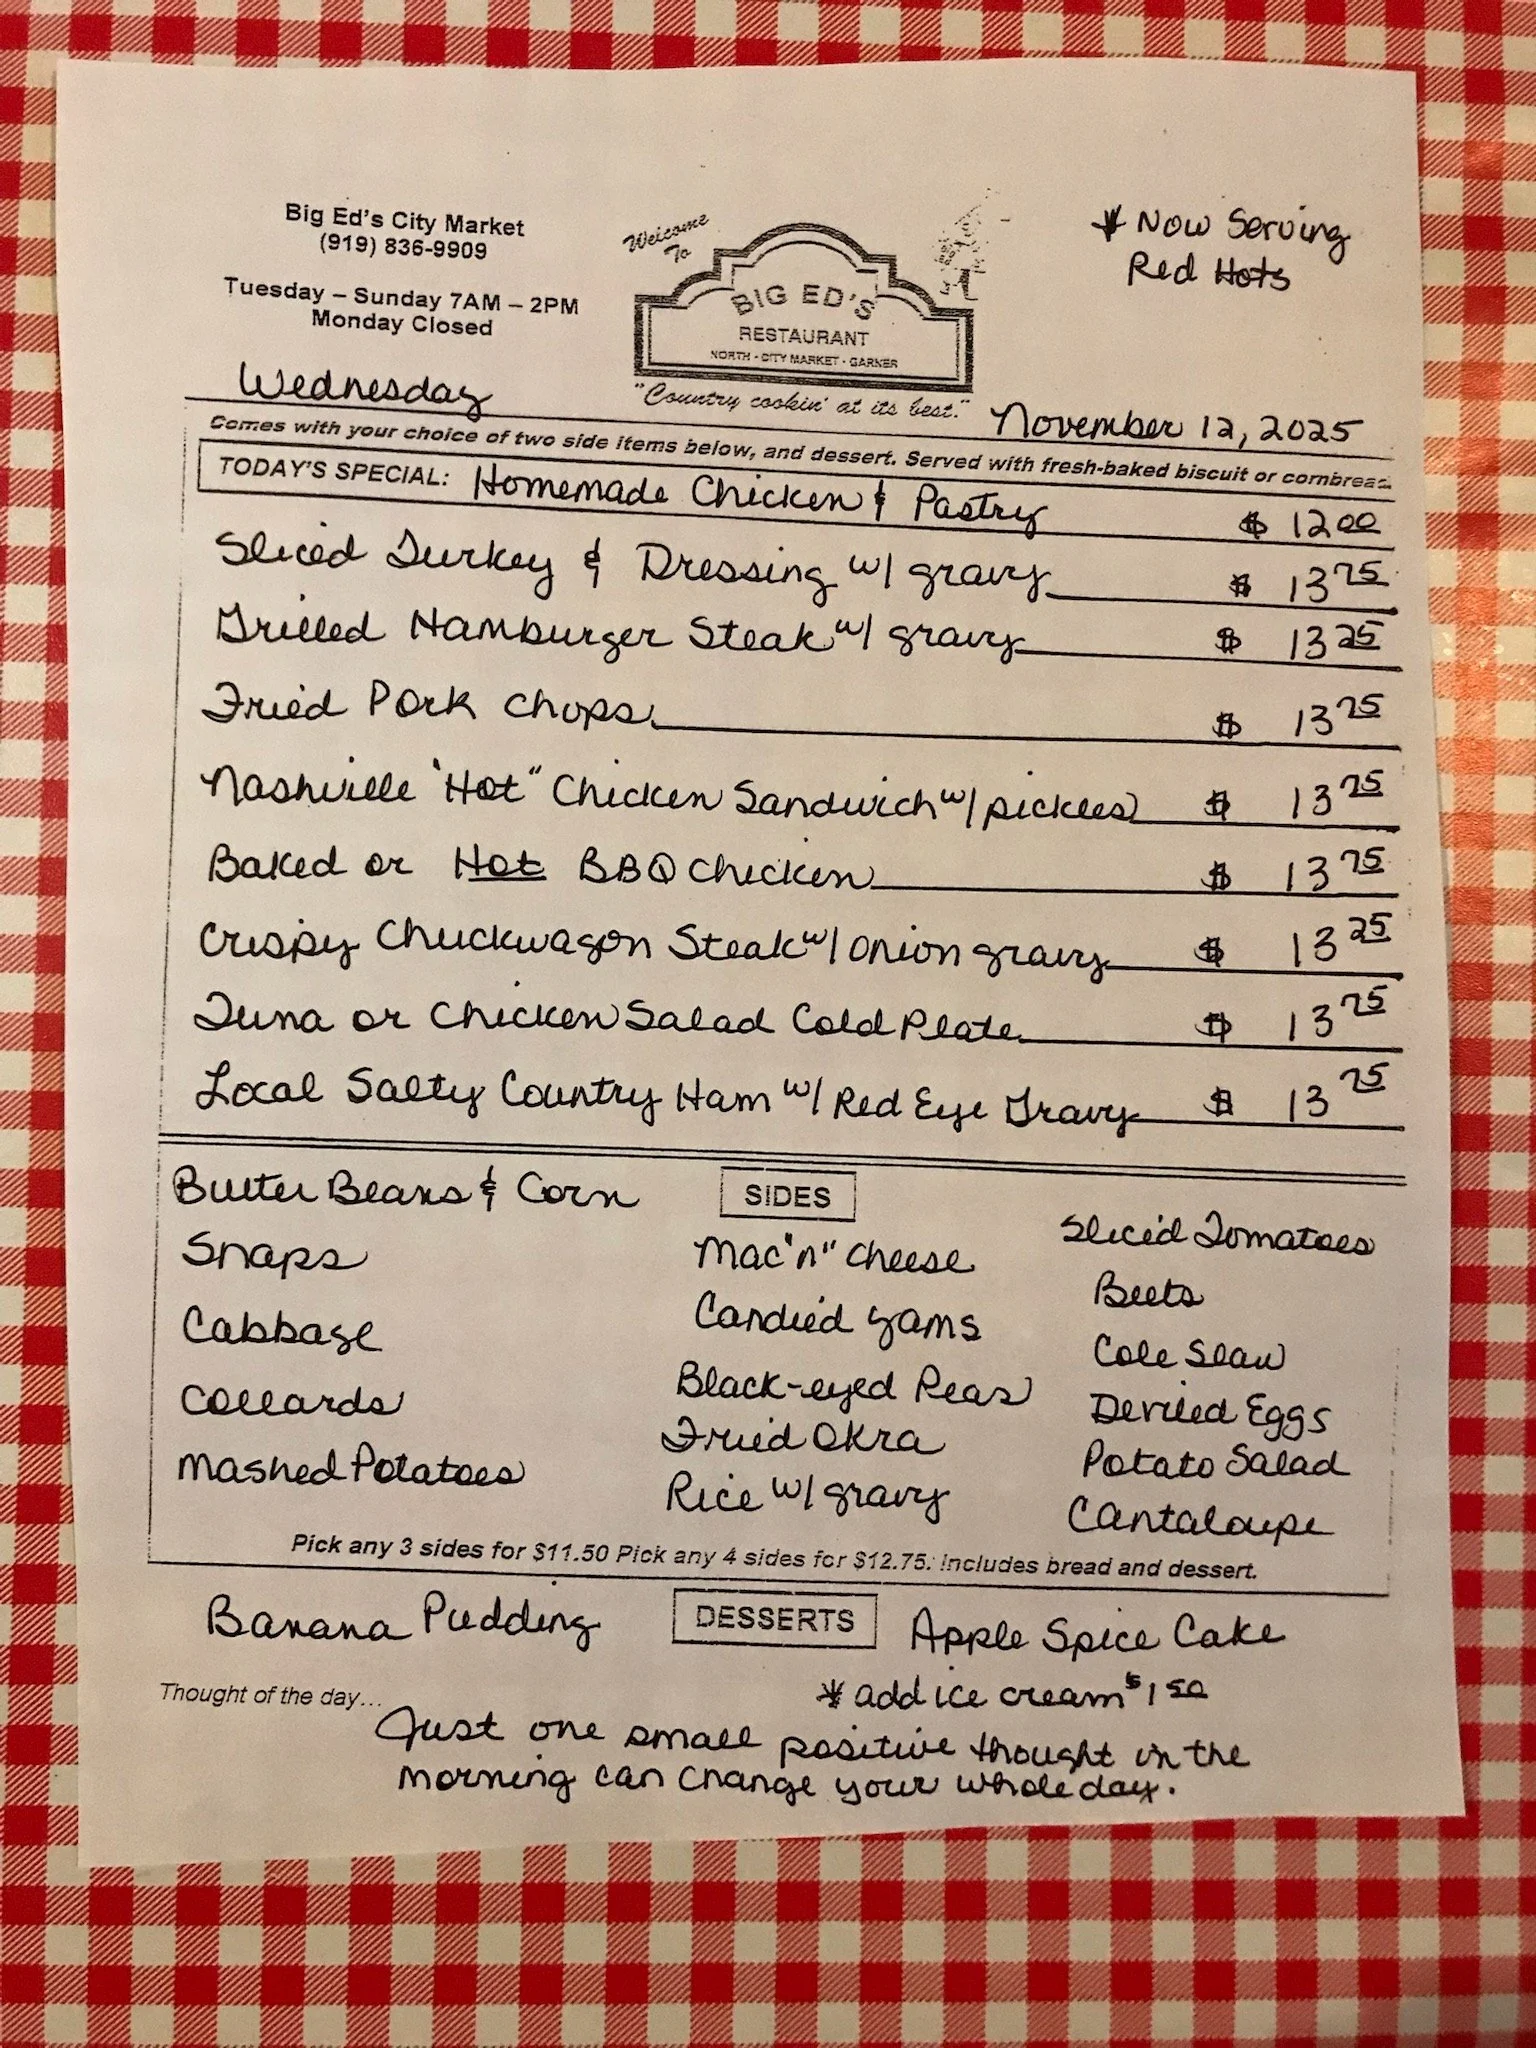 Big Ed's City Market
(919) 836-9909
Tuesday – Sunday 7AM – 2PM
Monday Closed
Welcome
To
BIG ED'S
RESTAURANT
NORTH - CITY MARKET - GARNER
"Country cookin' at its best."
* Now Serving
Red Hots
Wednesday
November 12, 2025
Comes with your choice of two side items below, and dessert. Served with fresh-baked biscuit or cornbread.
TODAY'S SPECIAL: Homemade Chicken & Pastry $ 12 00
Sliced Turkey & Dressing w/ gravy $ 13 75
Grilled Hamburger Steak w/ gravy $ 13 25
Fried Pork Chops $ 13 75
Nashville "Hot" Chicken Sandwich w/ pickles $ 13 75
Baked or Hot BBQ Chicken $ 13 75
Crispy Chuckwagon Steak w/ onion gravy $ 13 25
Tuna or Chicken Salad Cold Plate $ 13 75
Local Salty Country Ham w/ Red Eye Gravy $ 13 75
SIDES
Butter Beans & Corn
Snaps
Cabbage
Collards
Mashed Potatoes
Mac "n" Cheese
Candied Yams
Black-eyed Peas
Fried Okra
Rice w/ gravy
Sliced Tomatoes
Beets
Cole Slaw
Deviled Eggs
Potato Salad
Cantaloupe
Pick any 3 sides for $11.50 Pick any 4 sides for $12.75. Includes bread and dessert.
Banana Pudding
DESSERTS
Apple Spice Cake
* add ice cream $1 50
Thought of the day...
Just one small positive thought in the
morning can change your whole day.